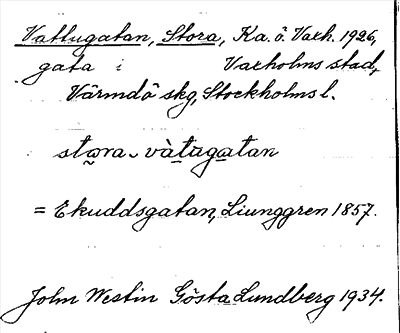 Vattugatan, Stora, Ka. ö. Vaxh. 1926,
gata i Vaxholms stad,
Värmdö skg, Stockholms l.
stωra vàtugatan
= Ekuddsgatan, Ljunggren 1857.
John Westin Gösta Lundberg 1934.